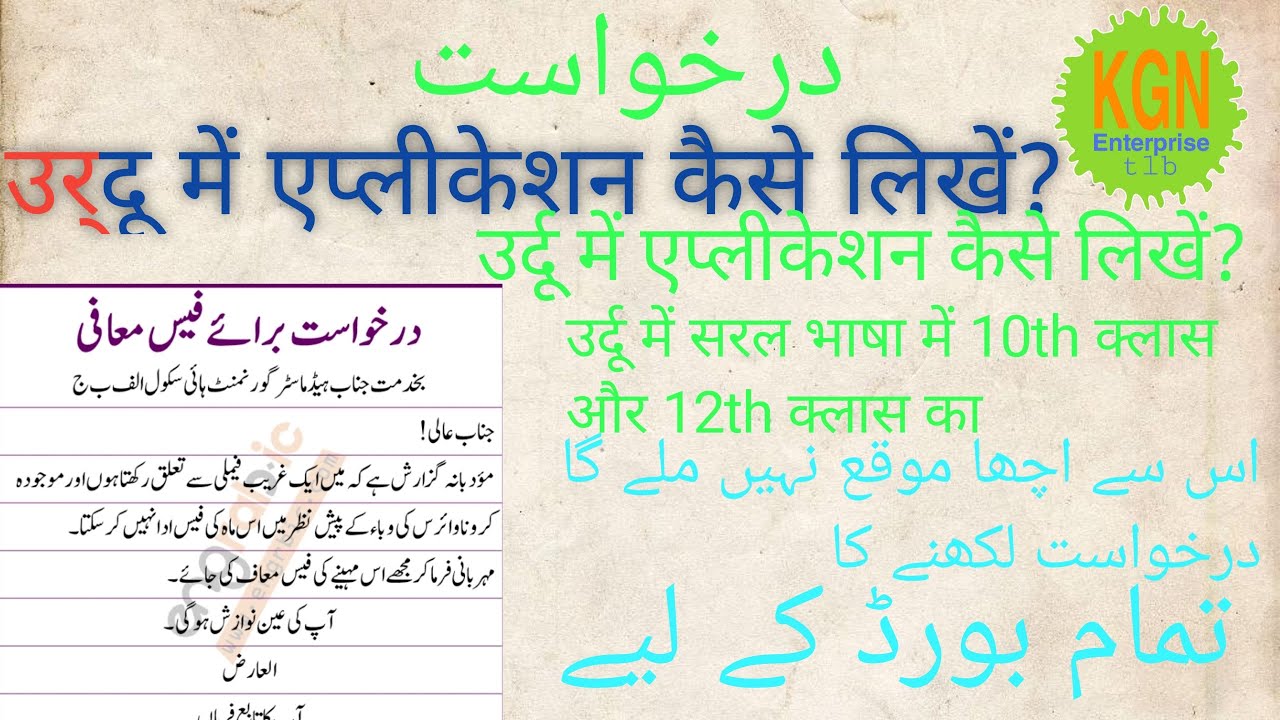 درخواست
KGN
Enterprise
tlb
उर्दू में एप्लीकेशन कैसे लिखें?
उर्दू में एप्लीकेशन कैसे लिखें?
उर्दू में सरल भाषा में 10th क्लास
और 12th क्लास का
اس سے اچھا موقع نہیں ملے گا
درخواست لکھنے کا
تمام بورڈ کے لیے
درخواست برائے فیس معافی
بخدمت جناب ہیڈماسٹر گورنمنٹ ہائی سکول الف ب ج
جناب عالی!
مؤدبانہ گزارش ہے کہ میں ایک غریب فیملی سے تعلق رکھتا ہوں اور موجودہ
کرونا وائرس کی وباء کے پیش نظر میں اس ماہ کی فیس ادا نہیں کر سکتا۔
مہربانی فرما کر مجھے اس مہینے کی فیس معاف کی جائے۔
آپ کی عین نوازش ہوگی۔
العارض
آپ کا تابع فرمان